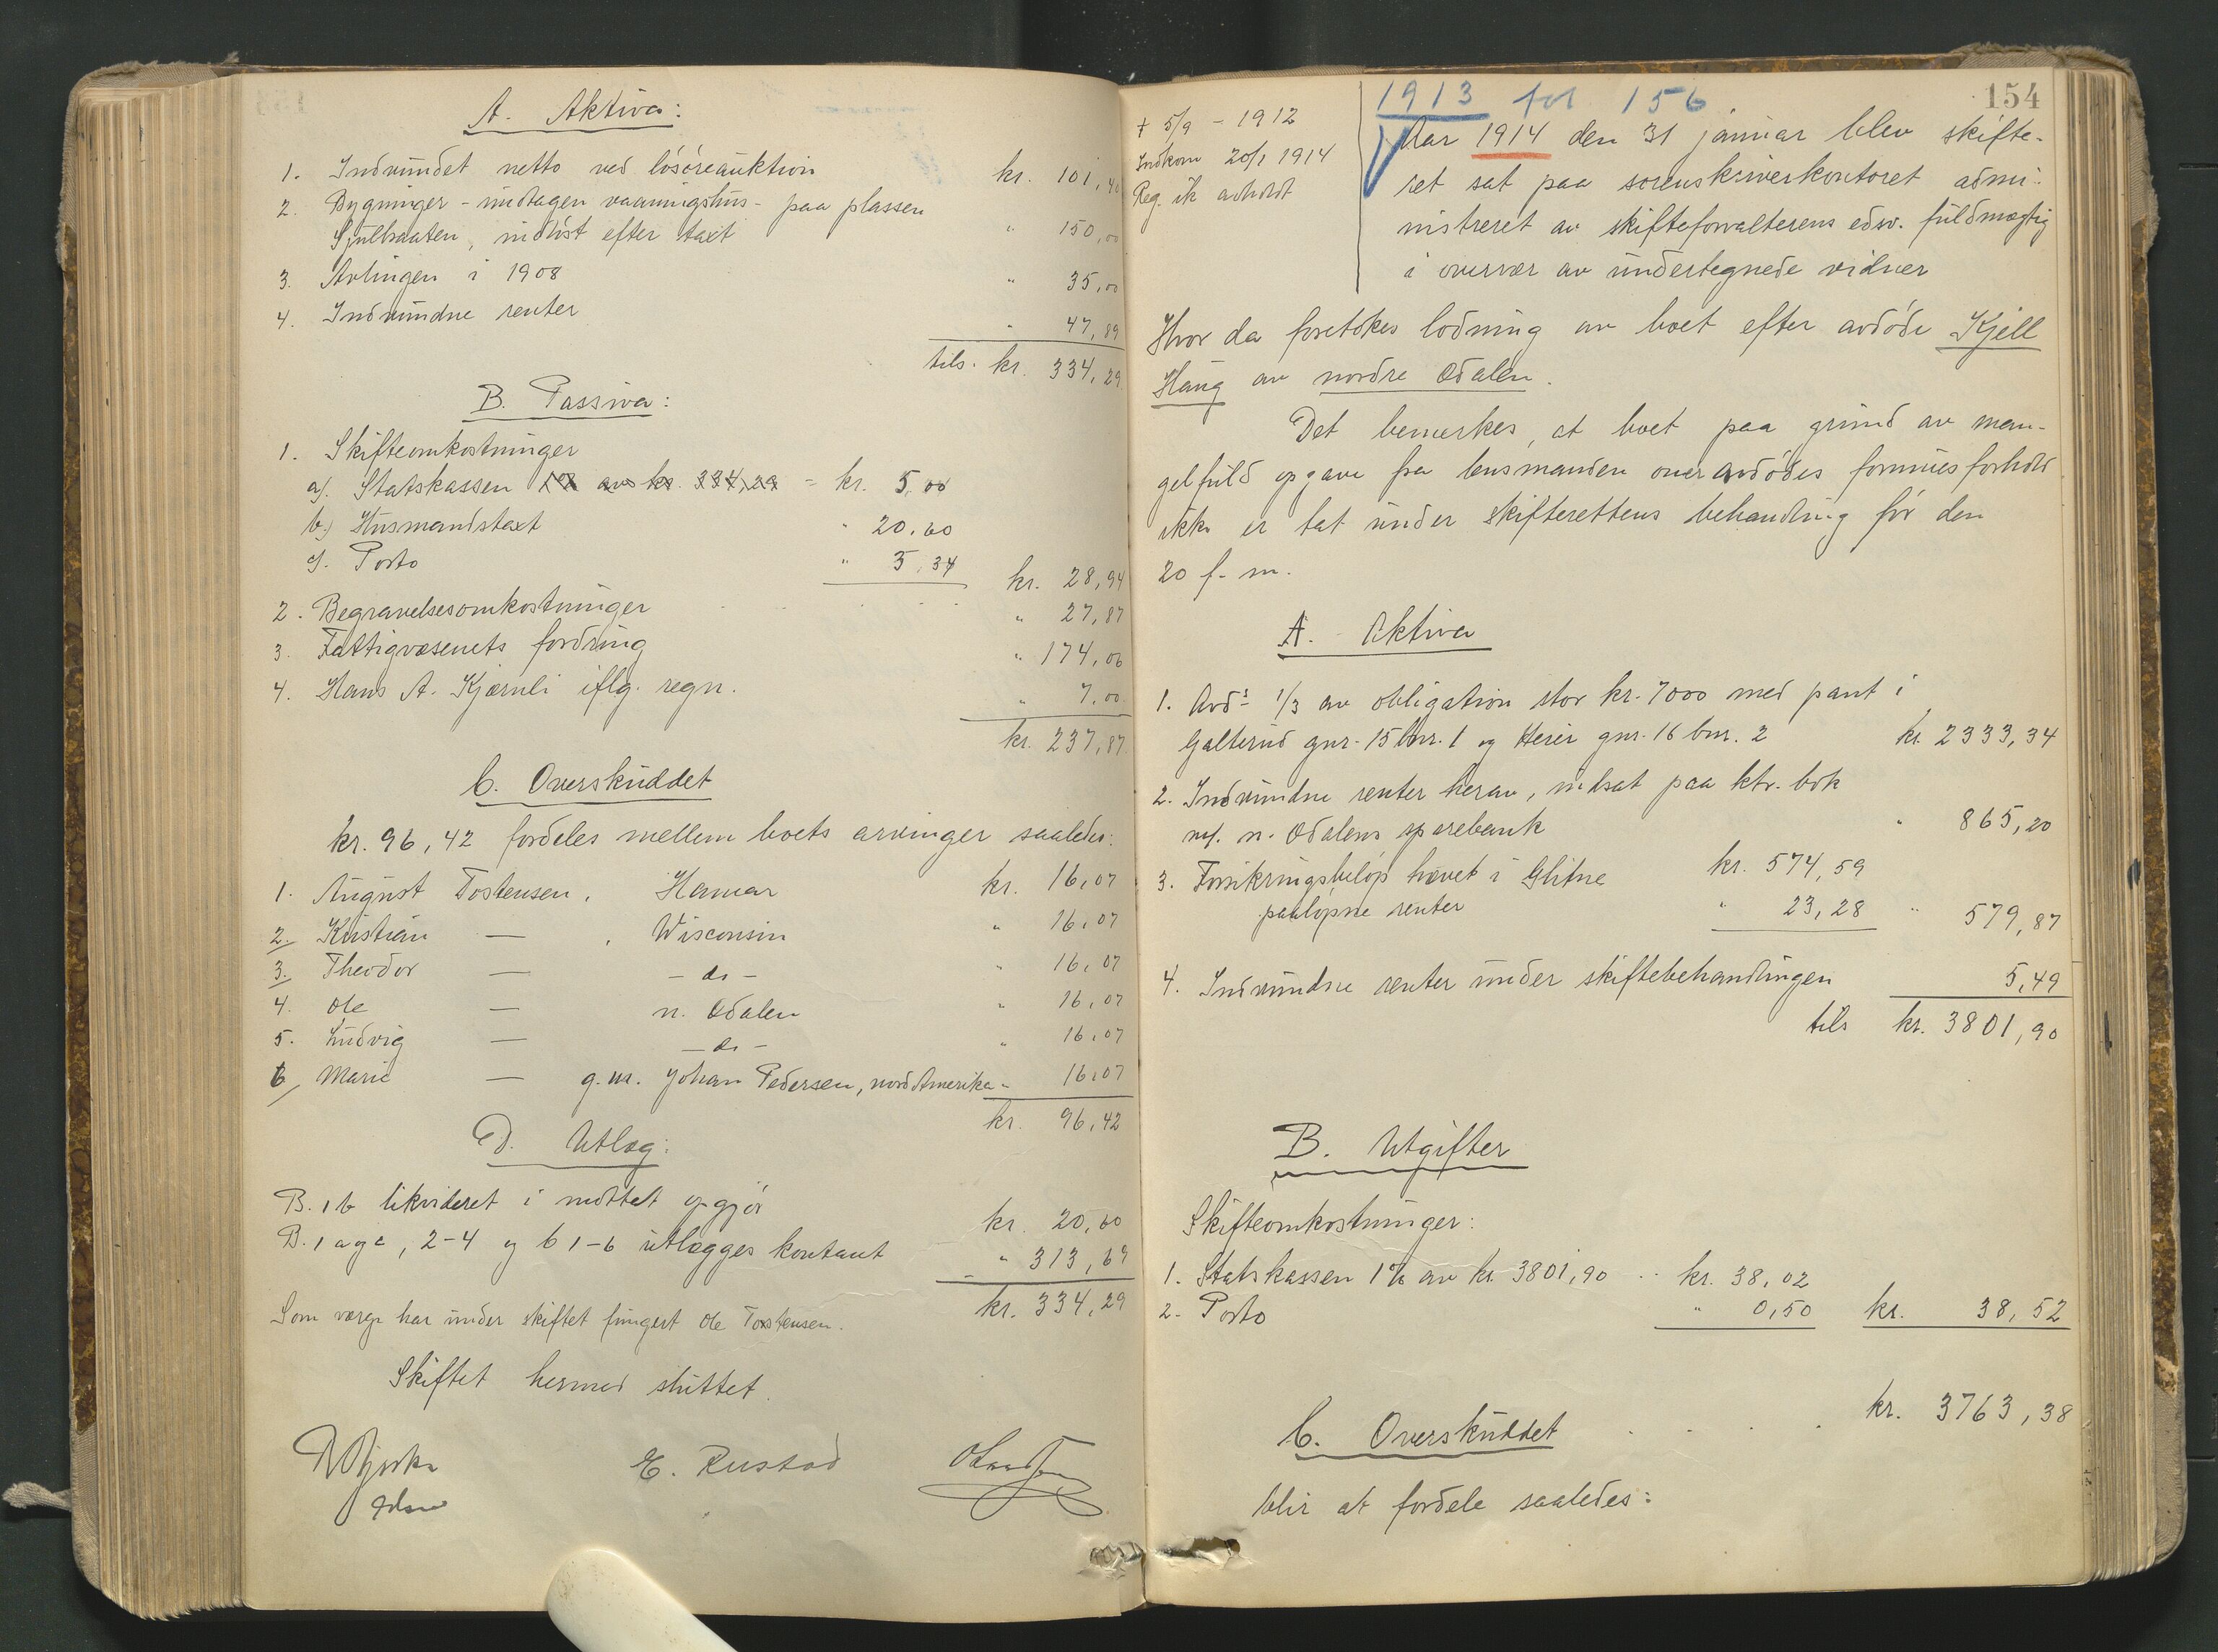 A. Aktiva:
1. Indvundet netto ved løsøreauktion kr. 101,40
2. Bygninger - undtagen vaaningshus - paa plassen
Sjulbraaten, indløst efter taxt " 150,00
3. Avlingen i 1908 " 35,00
4. Indvundne renter " 47,89
tils. kr. 334,29
B. Passiva:
1. Skifteomkostninger
a). Statskassen 1% av kr. 334,29 = kr. 5,00
b.) Husmandstaxt " 20.60
c). Porto " 3,34 kr. 28,94
2. Begravelsesomkostninger " 27,87
3. Fattigvæsenets fordring " 174,06
4. Hans A. Kjærnli iflg. regn. " 7,00
kr. 237,87
C. Overskuddet
kr. 96,42 fordeles mellem boets arvinger saaledes:
1. August Tostensen, Hamar kr. 16,07
2. Kristian — , Wisconsin " 16,07
3. Theodor — - do - " 16,07
4. Ole — n. Odalen " 16,07
5. Ludvig — - do - " 16,07
6 Marie — g.m. Johan Pedersen, nord Amerika " 16,07
kr. 96,42
D. Utlæg:
B. 1 b likvideret i mottat opgjør kr. 20,60
B. 1 a og c, 2-4 og C 1-6 utlægges kontant " 313,69
kr. 334,29
Som værge har under skiftet fungert Ole Tostensen.
Skiftet hermed sluttet.
E. Rustad
1913 fol 156
154
† 5/9 - 1912
Indkom 20/1 1914
Reg. ik avholdt
Aar 1914 den 31 januar blev skifte-
ret sat paa sorenskriverkontoret admi-
nistreret av skifteforvalterens edsv. fuldmægtig
i overvær av undertegnede vidner
Hvor da foretokes lodning av boet efter avdøde Kjell
Haug av nordre Odalen.
Det bemerkes, at boet paa grund av man-
gelfuld opgave fra lensmanden over avdødes formuesforhold
ikke er tat under skifterettens behandling før den
20 f. m.
A. Aktiva
1. Avds 1/3 av obligation stor kr. 7000 med pant i
Galterud gnr. 15 bnr. 1 og Herir gnr. 16 bnr. 2 kr. 2333,34
2. Indvundne renter herav, indsat paa ktr. bok
m/. n. Odalens sparebank " 865,20
3. Forsikringsbeløp hævet i Glitne kr. 574,59
paaløpne renter " 23,28 " 579,87
4. Indvundne renter under skiftebehandlingen 5,49
tils kr. 3801,90
B. Utgifter
Skifteomkostninger:
1. Statskassen 1% av kr. 3801,90 .. kr. 38,02
2. Porto " 0,50 kr. 38,52
C. Overskuddet . . . . kr. 3763,38
blir at fordele saaledes: